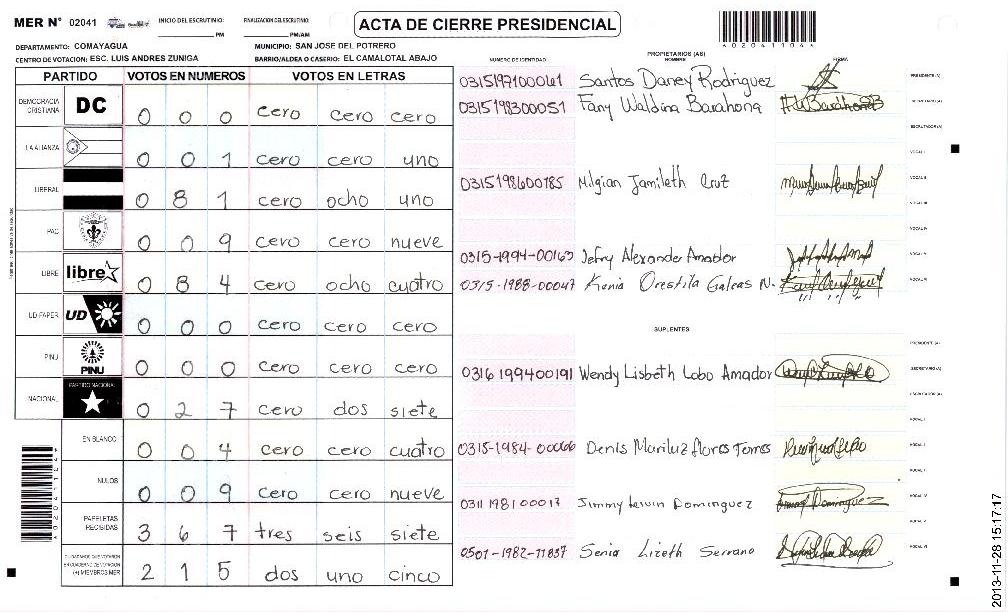 MER N° 02041 INICIO DEL ESCRUTINIO: PM FINALIZACION DEL ESCRUTINIO: PM/AM
ACTA DE CIERRE PRESIDENCIAL
A020411044
DEPARTAMENTO: COMAYAGUA MUNICIPIO: SAN JOSE DEL POTRERO
CENTRO DE VOTACION: ESC. LUIS ANDRES ZUNIGA BARRIO/ALDEA O CASERIO: EL CAMALOTAL ABAJO
NUMERO DE IDENTIDAD PROPIETARIOS (AS) NOMBRE FIRMA
PARTIDO VOTOS EN NUMEROS VOTOS EN LETRAS
DEMOCRACIA CRISTIANA DC 0 0 0 cero cero cero
LA ALIANZA 0 0 1 cero cero uno
LIBERAL 0 8 1 cero ocho uno
PAC 0 0 9 cero cero nueve
LIBRE libre 0 8 4 cero ocho cuatro
UD FAPER UD 0 0 0 cero cero cero
PINU PINU 0 0 0 cero cero cero
NACIONAL PARTIDO NACIONAL 0 2 7 cero dos siete
EN BLANCO 0 0 4 cero cero cuatro
NULOS 0 0 9 cero cero nueve
PAPELETAS RECIBIDAS 3 6 7 tres seis siete
CIUDADANOS QUE VOTARON EN CUADERNO DE VOTACION (+) MIEMBROS MER 2 1 5 dos uno cinco
0315197100061 Santos Daney Rodriguez PRESIDENTE (A)
0315198300051 Fany Waldina Barahona SECRETARIO (A)
ESCRUTADOR (A)
VOCAL I
0315198600785 Milgian Jamileth Cruz VOCAL II
VOCAL III
VOCAL IV
0315-1994-00163 Jefry Alexander Amador VOCAL V
0315-1988-00047 Kenia Orestila Galeas N. VOCAL VI
SUPLENTES
PRESIDENTE (A)
0316199400191 Wendy Lisbeth Lobo Amador SECRETARIO (A)
ESCRUTADOR (A)
VOCAL I
0315-1984-00066 Denis Mariluz flores Torres VOCAL II
VOCAL III
0311198100017 Jimmy Dominguez VOCAL IV
VOCAL V
0501-1982-11837 Senia Lizeth Serrano VOCAL VI
2013-11-28 15:17:17